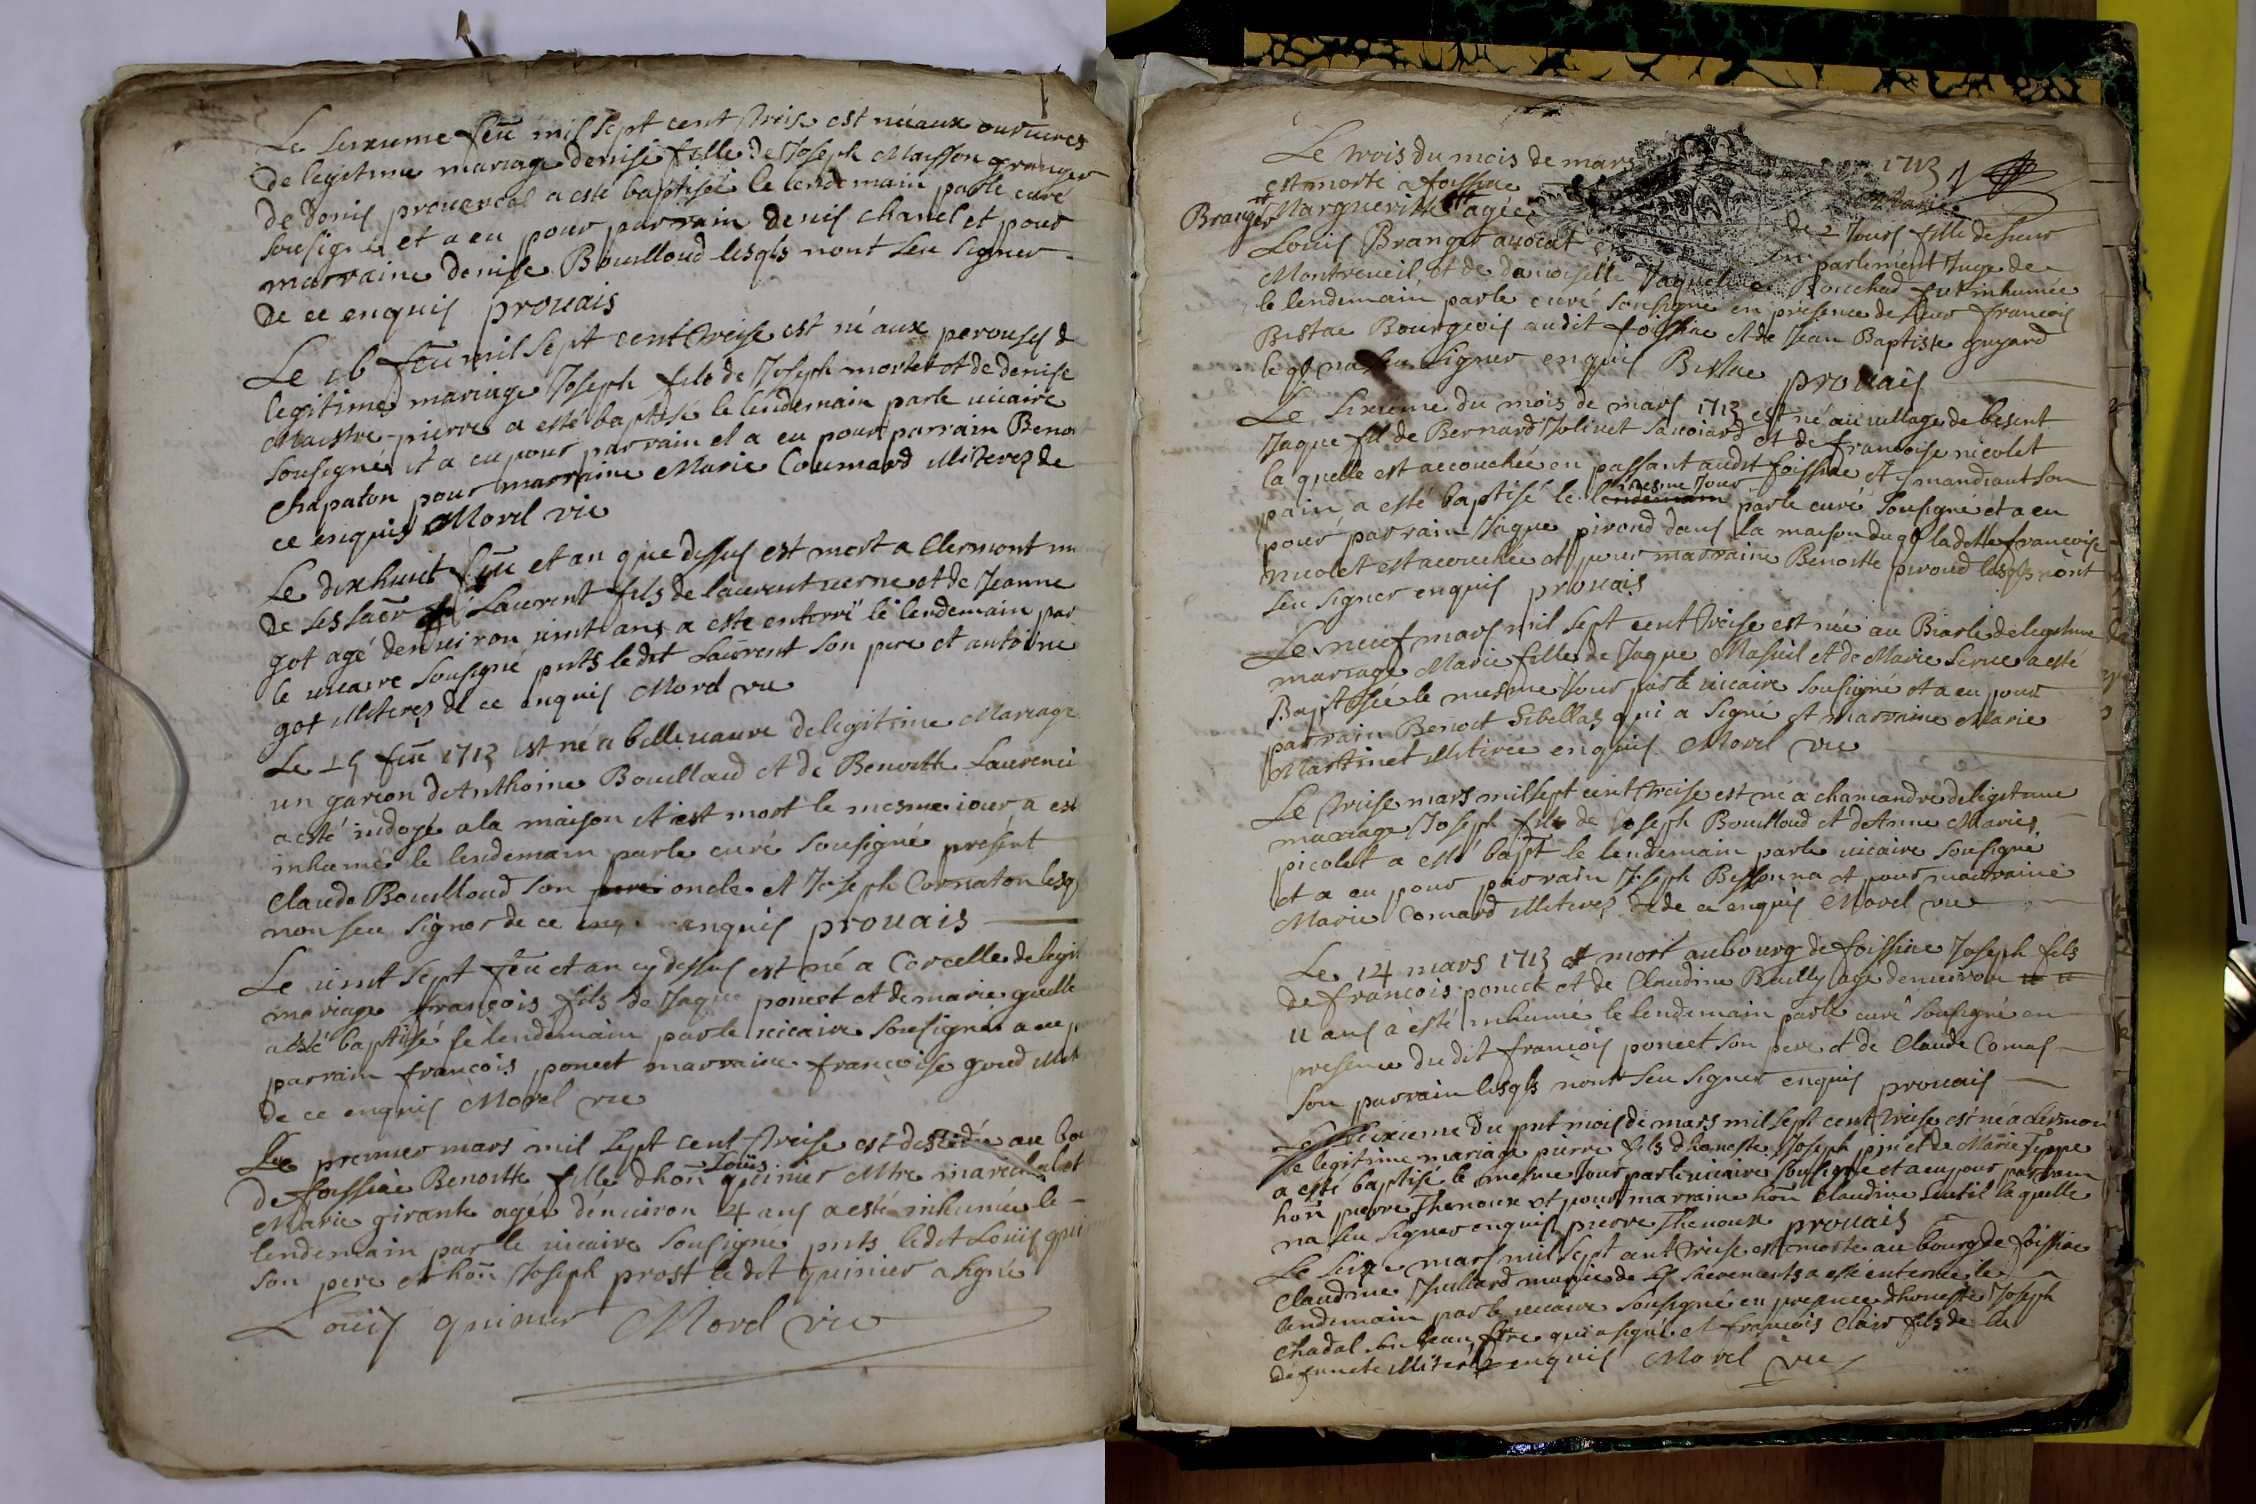 Le seixieme feü mil sept cent treise est néé aux ouruires
de legitime mariage denise fille de Joseph Maisson granger
de denis prouencal a esté baptisée le lendemain parle curé
sousigné et a eu pour parrain denis chanel et pour
marraine denise Bouilloud lesqls nont seu signer
de ce enquis prouais
Le 16 feü mil sept cent treise est né aux perouses de
legitime mariage Joseph fils de Joseph mortel et de denise
Maistre-pierre a esté baptisé le lendemain parle uicaire
sousigné et a eu pour parrain et a eu pour parrain Benoit
chapaton pour marraine Marie Coumard illiterez de
ce enquis Morel vic
Le dixhuit feü et an que dessus est mort a Clermont muni
de ses sacr Laurent fils de laurent uerne et de Jeanne
got agé denuiron uint ans a esté enterré le lendemain par
le uicaire sousigné pnts ledit Laurent son pere et antoine
got illiterez de ce enquis Morel vic
Le 19 feü 1713 est né a belleuauure de legitime Mariage
un garcon de Anthoine Bouilloud et de Benoitte Laurenci
a esté indoyé a la maison et est mort le mesme iour a esté
inhumé le lendemain parle curé sousigné present
Claude Bouilloud son pere oncle et Joseph Cornaton lesqls
non seu signer de ce enquis prouais
Le uint sept feü et an cy dessus est né a Corcelle de legit
mariage francois fils de Jaque poncet et de marie guelle
a esté baptisé le lendemain parle uicaire sousigné a eu pour
parrain francois poncet marraine francoise goud illit
de ce enquis Morel vic
Le premier mars mil sept cent treise est decedée au bourg
de foissiac Benoitte fille d hon Loüis quinier Mtre marichal et
Marie girante agée denuiron 4 ans a esté inhumée le
lendemain par le uicaire sousigné pnts ledit Loüis quinier
son pere et hon Joseph prost le dit quinier a signé
Louis quinier Morel vic
Le trois du mois de mars 1713
est morte a foissiac Marie
Branger Margueritte agée de 2 Jours fille de sieur
Louis Branger auocat en parlement Juge de
Montreueil et de damoiselle Jaqueline Bouchad fut inhumée
le lendemain parle curé sousigné en presence de sieur francois
Bistac Bourgeois audit foissiac et de Jean Baptiste guyard
le ql na seu signer enquis Bistac prouais
Le sixieme du mois de mars 1713 est né au uillage de besent
Jaque fil de Bernard Joliuet sauoiard et de francoise nicolet
la quelle est accouchée en passant audit foissiac et mandiant son
pain a esté baptisé le lendemain mesme Jour parle curé sousigné et a eu
pour parrain Jaque piroud dans la maison du ql ladette francoise
nicolet est accouchée et pour marraine Benoitte piroud lesqls nont
seu signer enquis prouais
Le neuf mars mil sept cent treise est née au Biarle de legitime
mariage Marie fille de Jaque Masuil et de Marie serue a esté
Baptisée le mesme Jour parle uicaire sousigné et a eu pour
parrain Benoit Sibellas qui a signé et marraine Marie
Martinet illitirée enquis Morel vic
Le treise mars mil sept cent treise est né a chamandre de legitime
mariage Joseph fils de Joseph Bouilloud et de Anne Marie
picolet a esté bapt le lendemain parle uicaire sousigné
et a eu pour parrain Joseph Bissonna et pour marraine
Marie Comard illiterez de ce enquis Morel vic
Le 14 mars 1713 est mort au bourg de foissiac Joseph fils
de francois poncet et de Claudine Builly agé denuiron 11 11
11 ans a esté inhumé le lendemain parle curé sousigné en
presence du dit francois poncet son pere et de Claude Comas
son parrain lesqls nont seu signer enquis prouais
Le seixieme du pnt mois de mars mil sept cent treise est né a clermon
de legitime mariage pierre fils d honeste Joseph pin et de Marie Tippe
a esté baptisé le mesme Jour parle uicaire sousigné et a eu pour parrain
hon pierre Thenoux et pour marraine hon Claudine sentil laquelle
na seu signer enquis pierre Thenoux prouais
Le seixe mars mil sept cent treise est morte au bourg de foissiac
Claudine Juillard munie de ses sacrements a esté enterrée le
lendemain parle uicaire sousigné en presence d honeste Joseph
chadal son beau frere qui a signé et francois Clair fils de la
defuncte illiterez enquis Morel vic